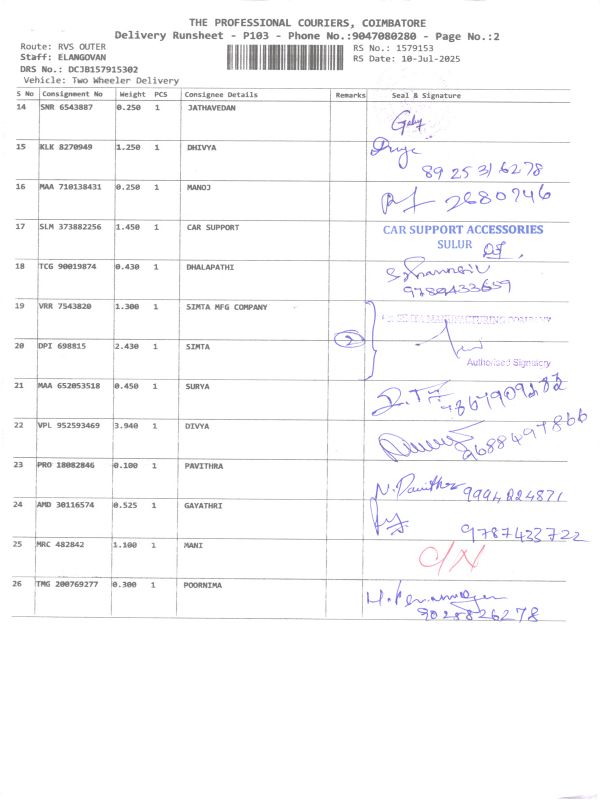 THE PROFESSIONAL COURIERS, COIMBATORE
Delivery Runsheet - P103 - Phone No.:9047080280 - Page No.:2
Route: RVS OUTER RS No.: 1579153
Staff: ELANGOVAN RS Date: 10-Jul-2025
DRS No.: DCJB157915302
Vehicle: Two Wheeler Delivery
S No Consignment No Weight PCS Consignee Details Remarks Seal & Signature
14 SNR 6543887 0.250 1 JATHAVEDAN
15 KLK 8270949 1.250 1 DHIVYA
8925316278
16 MAA 710138431 0.250 1 MANOJ 2680746
17 SLM 373882256 1.450 1 CAR SUPPORT CAR SUPPORT ACCESSORIES
SULUR
18 TCG 90019874 0.430 1 DHALAPATHI
9789433659
19 VRR 7543820 1.300 1 SIMTA MFG COMPANY
MANUFACTURING COMPANY
20 DPI 698815 2.430 1 SIMTA 2
Authorised Signatory
21 MAA 652053518 0.450 1 SURYA
22 VPL 952593469 3.940 1 DIVYA
9688497866
23 PRO 18082846 0.100 1 PAVITHRA N. Pavithra
24 AMD 30116574 0.525 1 GAYATHRI
9787433722
25 MRC 482842 1.100 1 MANI
26 TMG 200769277 0.300 1 POORNIMA
9028826278